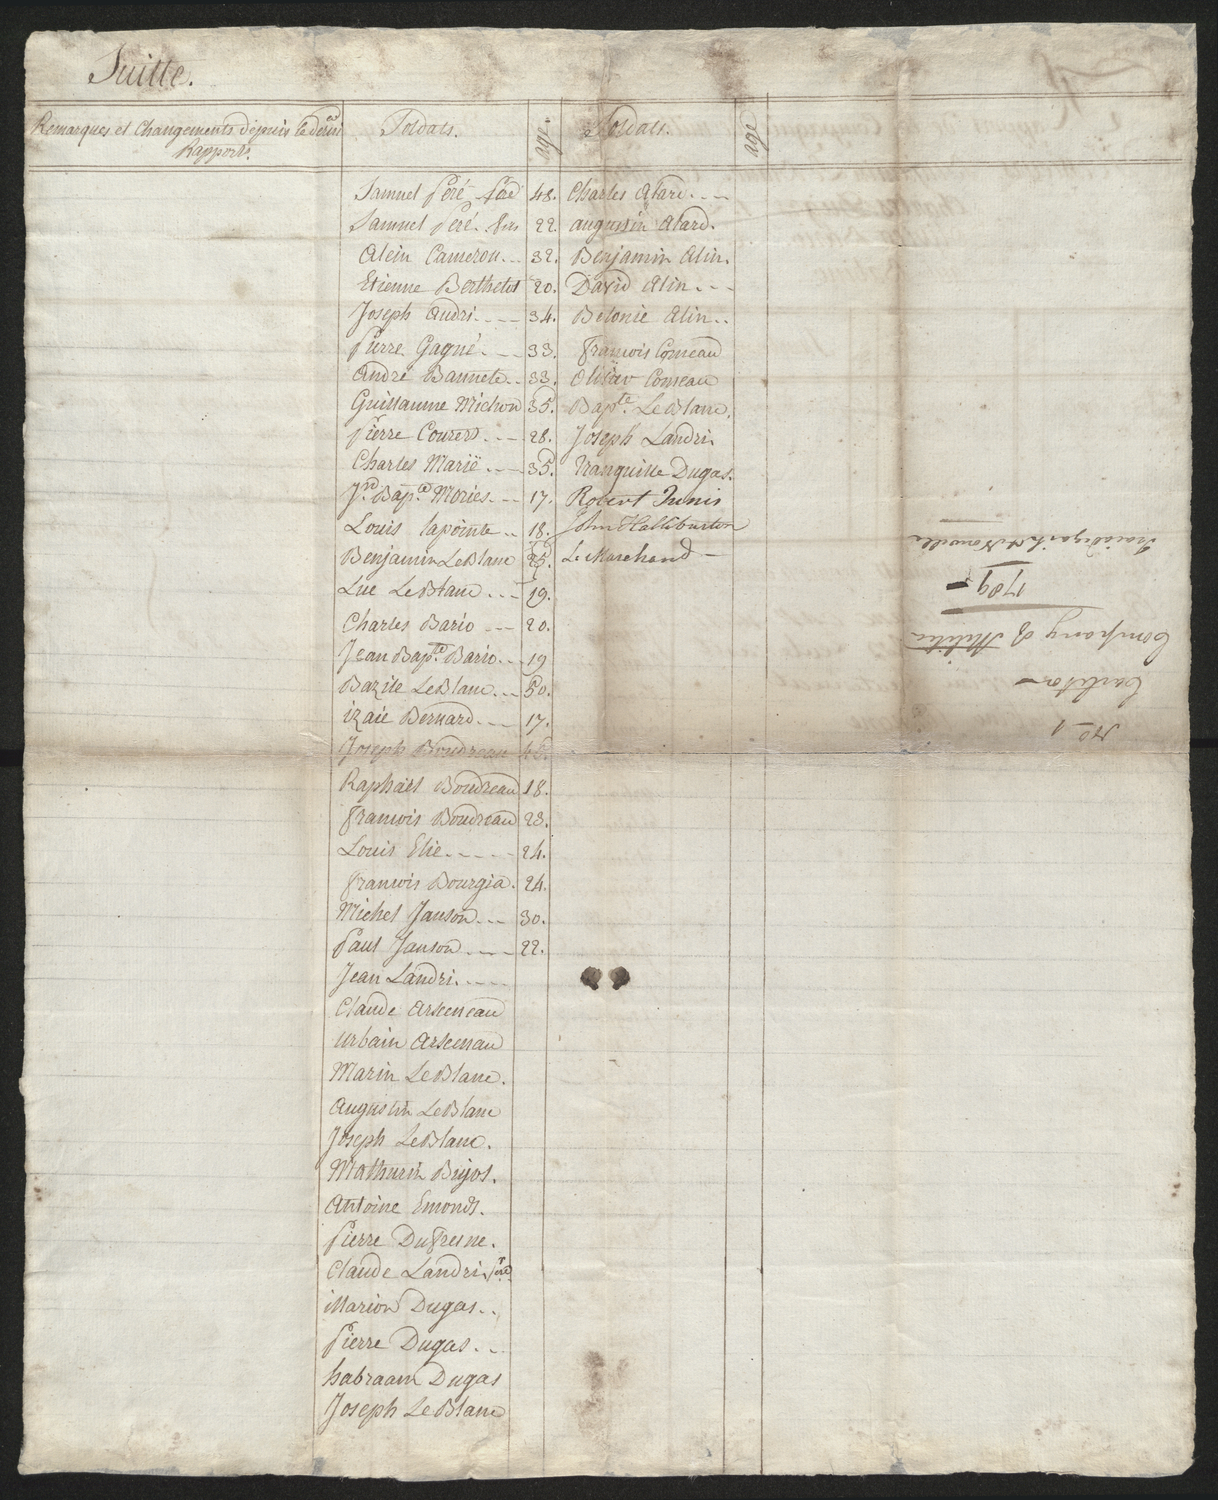 Suitte.
Remarques et Changements depuis le dern
Rapports.
Soldats.
age
Soldats.
age
Samuel Péré Péré 48.
Samuel Péré fis 22.
Alein Cameron 32.
Etienne Berthelot 20.
Joseph Audri 34.
Pierre Gagné 33.
André Bannete 33.
Guillaume Michon 35.
Pierre Courers 28.
Charles Marië 35.
Jn Bapte Mories 17.
Louis lapointe 18.
Benjamin LeBlanc 25.
Luc LeBlanc 19.
Charles Bario 20.
Jean Bapte Bario 19
Bazile LeBlanc 50.
izaie Bernard 17.
Joseph Boudreau 46.
Raphaël Boudreau 18.
francois Boudreau 23.
Louis Elie 24.
francois Bourgia. 24.
Michel Janson 30.
Paul Janson 22.
Jean Landri.
Claude Arseneau
Urbain Arsenau
Marin LeBlanc.
Augustin LeBlanc
Joseph LeBlanc.
Mathurin Bujos.
Antoine Emonds.
Pierre Dufresne.
Claude Landri Père
Marion Dugas.
Pierre Dugas.
habraam Dugas
Joseph LeBlanc
Charles Alard.
augustin Alard.
Benjamin Alin.
David Alin
Belonie Alin.
francois Comeau
Olivav Comeau
Bapte LeBlanc.
Joseph Landri.
Tranquille Dugas.
Robert
John Halliburton
Le Marchand
No 1
Carleton
Company of Militia
1789
Traidigash & Nouvelle